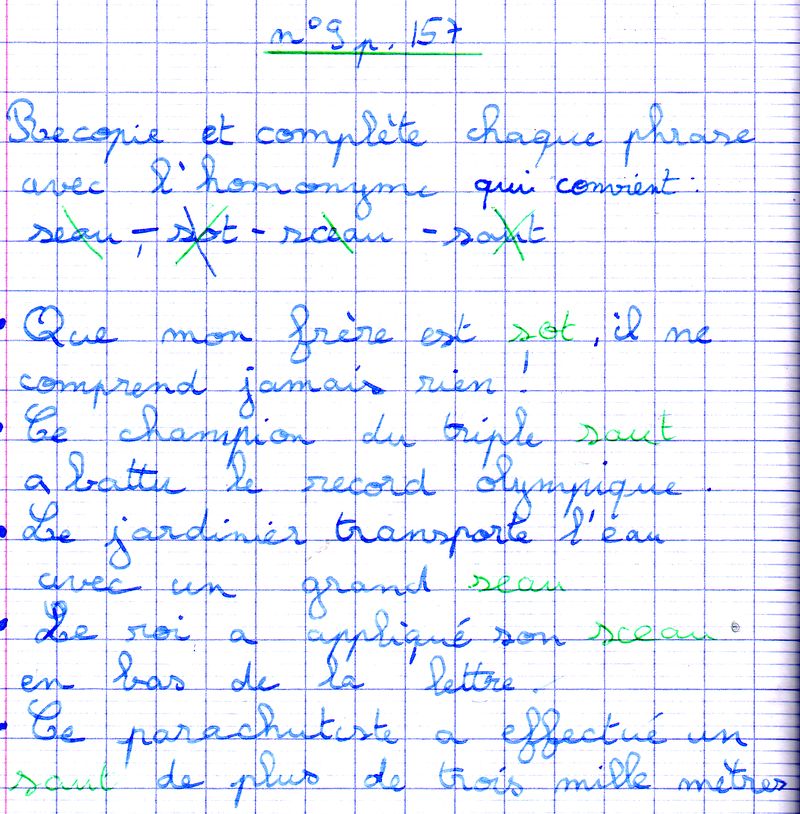 n°9 p. 157
Recopie et complète chaque phrase
avec l'homonyme qui convient :
seau - sot - sceau - saut
• Que mon frère est sot, il ne
comprend jamais rien !
• Ce champion du triple saut
a battu le record olympique.
• Le jardinier transporte l'eau
avec un grand seau
• Le roi a appliqué son sceau
en bas de la lettre.
• Ce parachutiste a effectué un
saut de plus de trois mille mètres